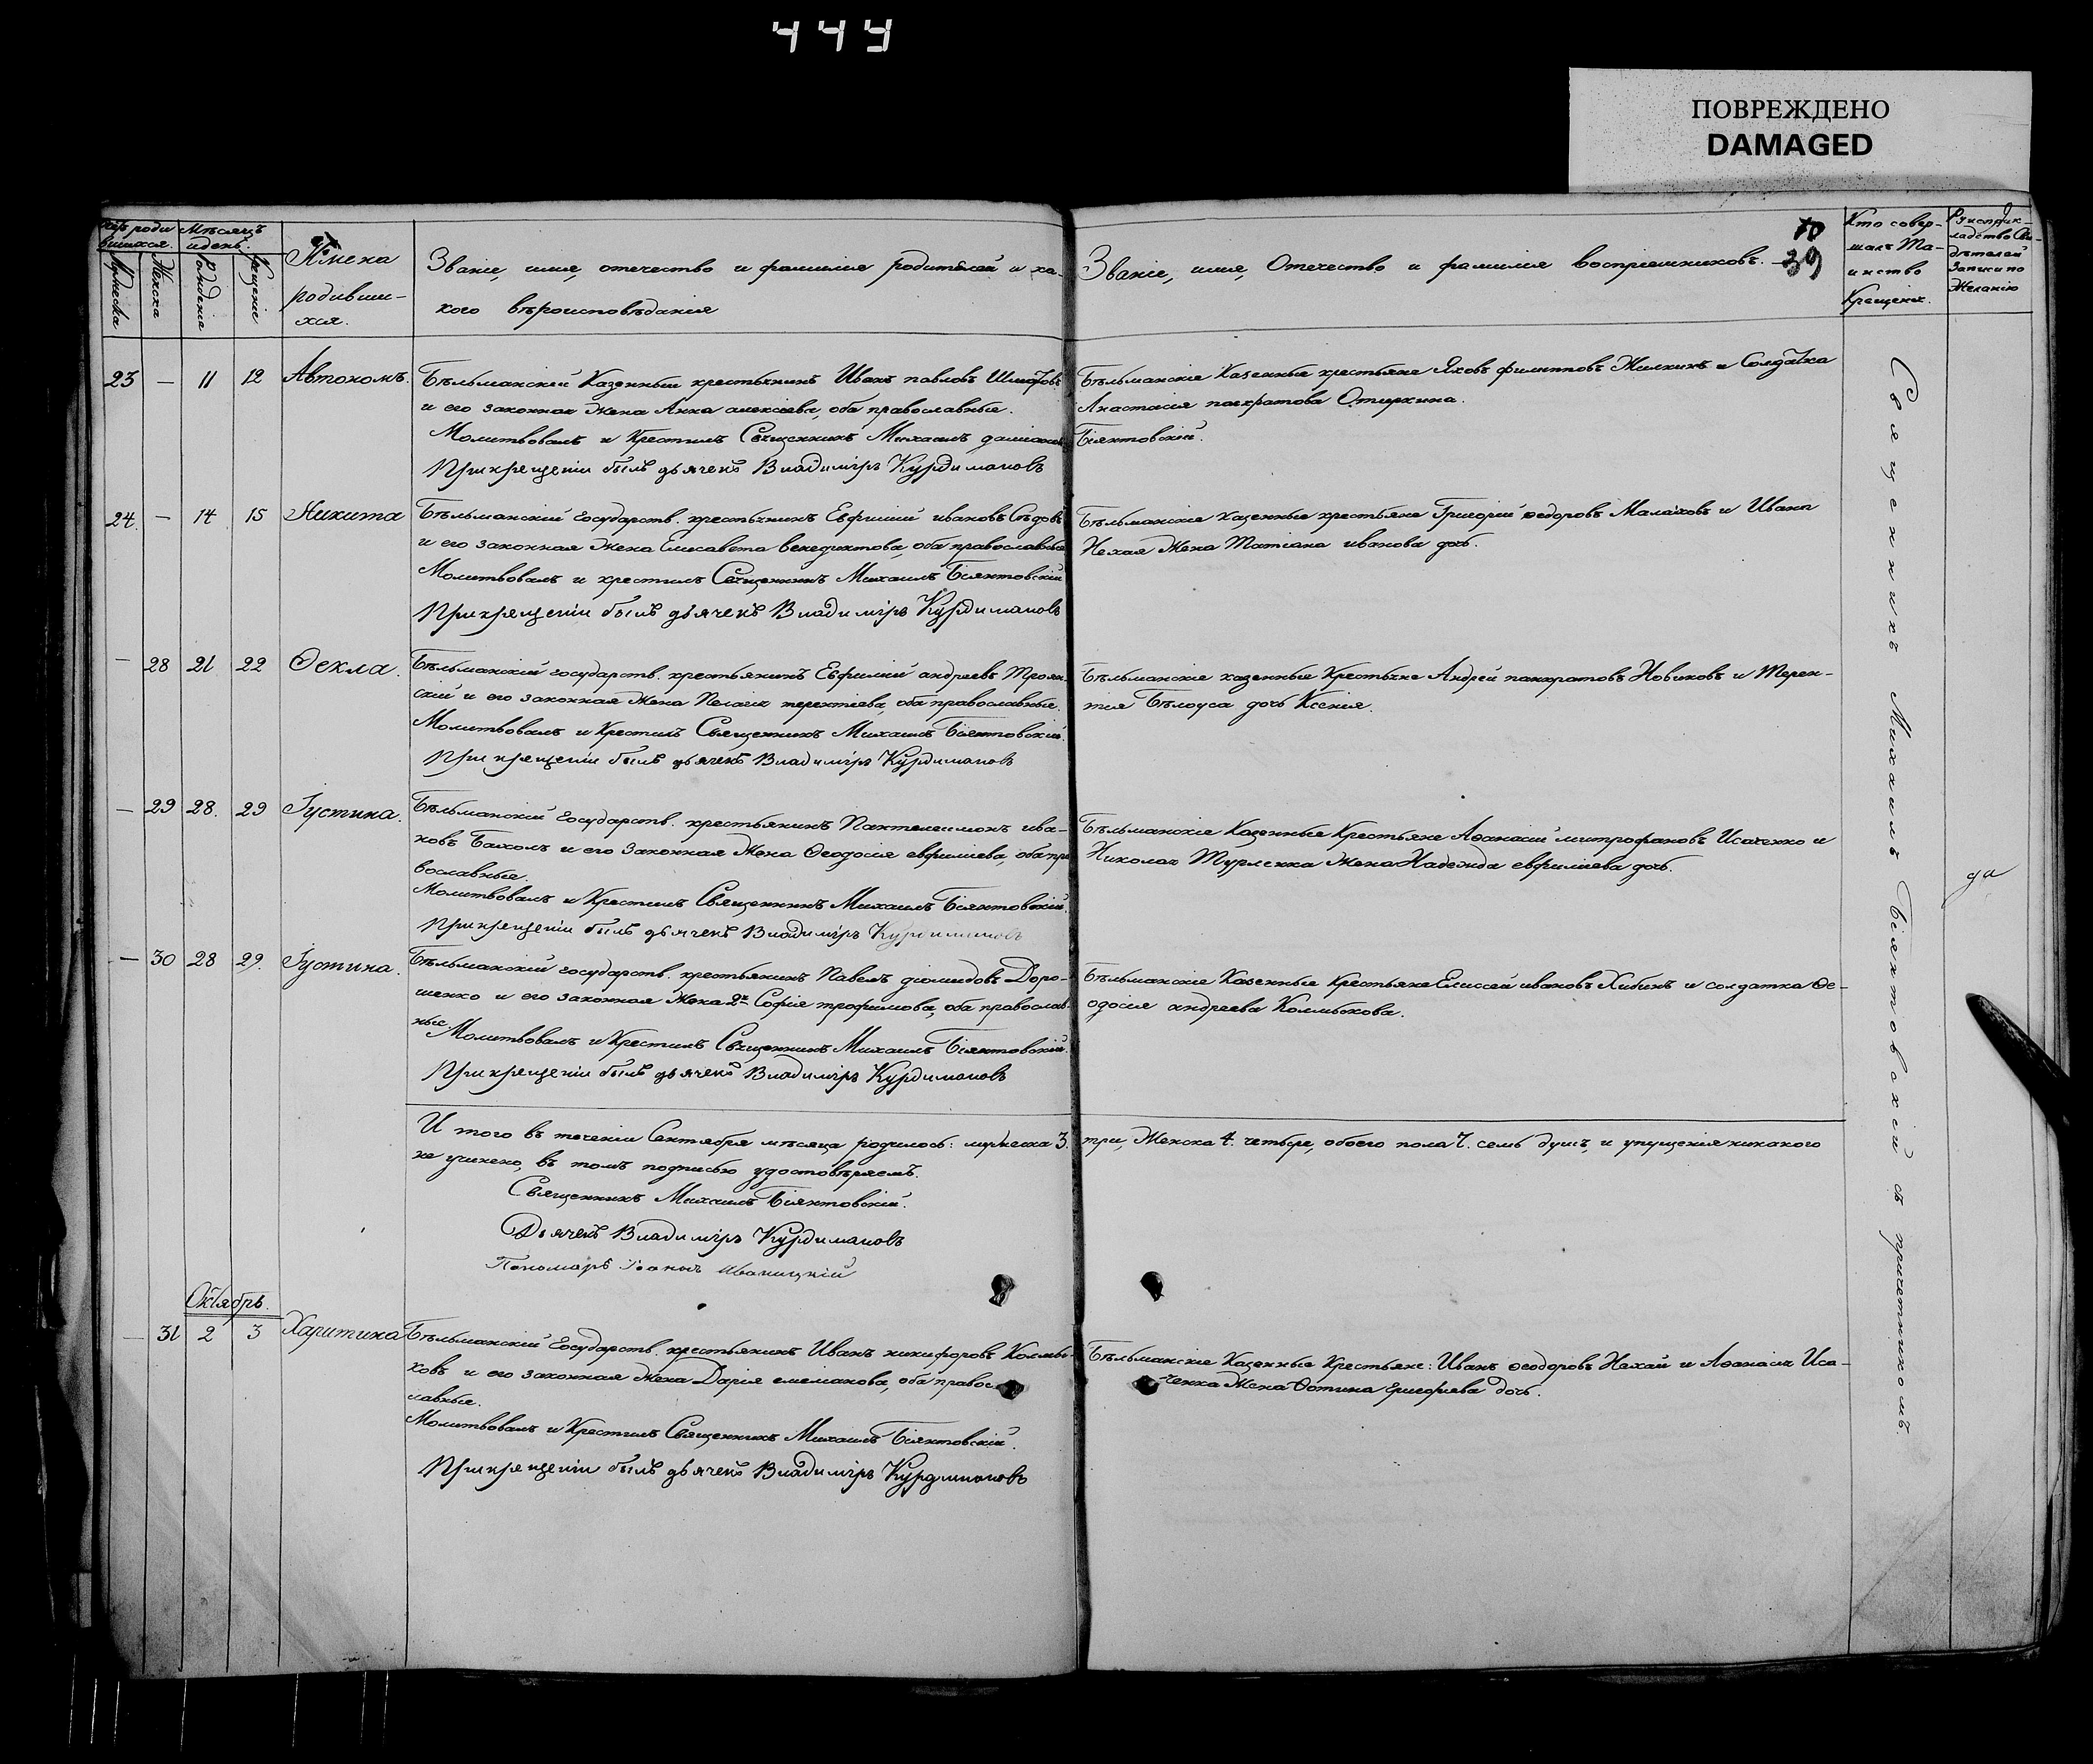 444
ПОВРЕЖДЕНО
DAMAGED
родившихся. Мѣсяцъ и день.
Мужеска
Женска
Рожденіе
Крещеніе
Имена родивши-
хся.
Званіе, имя, отечество и фамилія родителей и ка-
кого вѣроисповѣданія
Званіе, имя, Отечество и фамилія воспріемниковъ.
39
Кто совер-
шалъ Та-
инство
Крещенія.
Рукоприк-
ладство Сви-
дѣтелей
Записи по
Желанію
23 — 11 12 Автономъ.
Бѣльманскій Казенный крестьянинъ Иванъ павловъ
и его законная жена Анна алексіева, оба православные.
Молитвовалъ и Крестилъ Священникъ Михаилъ даміановъ
При крещеніи былъ дьячекъ Владиміръ Курдимановъ
Бѣльманскіе Казенные крестьяне Яковъ филипповъ Жилкинъ и Солдатка
Анастасія панкратова
Біянтовскій.
24. — 14 15 Никита
Бѣльманскій государств. крестьянинъ Евфимій ивановъ Сѣдовъ
и его законная жена Елисавета венедиктова, оба православные
Молитвовалъ и крестилъ Священникъ Михаилъ Біянтовскій
При крещеніи былъ дьячекъ Владиміръ Курдимановъ
Бѣльманскіе казенные крестьяне Григорій ѳедоровъ Малаховъ и Ивана
Нехая Жена Татіана иванова дочь.
— 28 21 22 Ѳекла.
Бѣльманскій государств. крестьянинъ Евфимій андреевъ Троян-
скій и его законная жена Пелагія терентіева, оба православные.
Молитвовалъ и Крестилъ Священникъ Михаилъ Біянтовскій.
При крещеніи былъ дьячекъ Владиміръ Курдимановъ
Бѣльманскіе казенные Крестьяне Андрей панкратовъ Новиковъ и Терен-
тія Бѣлоуса дочь Ксенія.
— 29 28. 29 Іустина.
Бѣльманскій государств. крестьянинъ Пантелеимонъ ива-
новъ и его Законная Жена Ѳеодосія евфиміева, оба пра
вославные.
Молитвовалъ и Крестилъ Священникъ Михаилъ Біянтовскій.
При крещеніи былъ дьячекъ Владиміръ Курдимановъ
Бѣльманскіе Казенные Крестьяне Аѳанасій митрофановъ Исаченко и
Николая Турленка Жена Надежда евфиміева дочь.
да
— 30 28 29. Іустина.
Бѣльманскій государств. крестьянинъ Павелъ діомидовъ Доро-
шенко и его законная Жена 2я Софія трофимова, оба православ-
ные.
Молитвовалъ и Крестилъ Священникъ Михаилъ Біянтовскій.
При крещеніи былъ дьячекъ Владиміръ Курдимановъ
Бѣльманскіе Казенные Крестьяне Елиссей ивановъ Хибинъ и солдатка Ѳе-
одосія андреева Колмыкова.
И того въ теченіи Сентября мѣсяца родилось: мужеска 3. три, Женска 4. четыре, обоего пола 7. семь душъ, и упущенія никакого
не учинено, въ томъ подписью удостовѣряемъ.
Священникъ Михаилъ Біянтовскій.
Дьячекъ Владиміръ Курдимановъ
Пономарь Іоаннъ Иваницкій
Октябрь.
— 31 2 3 Харитина
Бѣльманскій Государств. крестьянинъ Иванъ никифоровъ Колмы-
ковъ и его законная Жена Дарія оба право
славные.
Молитвовалъ и Крестилъ Священникъ Михаилъ Біянтовскій.
При крещеніи былъ дьячекъ Владиміръ Курдимановъ
Бѣльманскіе Казенные Крестьяне: Иванъ ѳеодоровъ Нехай и Аѳанасія Иса-
ченка Жена Ѳотина григоріева дочь.
Священникъ Михаилъ Біянтовскій съ причетникомъ.